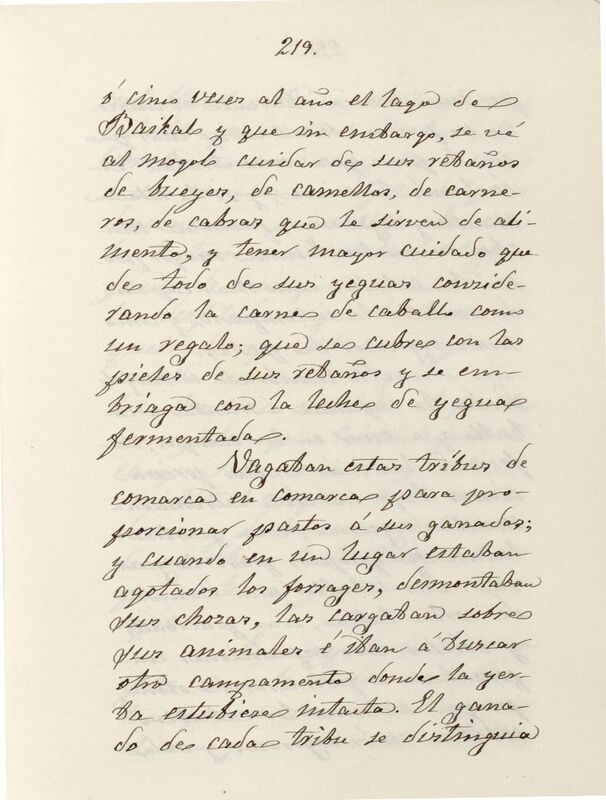 219.
ó cinco veces al año el lago de
Baikal y que sin embargo, se vé
al mogol cuidar de sus rebaños
de bueyes, de camellos, de carne-
ros, de cabras que le sirven de ali-
mento, y tener mayor cuidado que
de todo de sus yeguas conside-
rando la carne de caballo como
un regalo; que se cubre con las
pieles de sus rebaños y se em-
briaga con la leche de yegua
fermentada.
Vagaban estas tribus de
comarca en comarca para pro-
porcionar pastos á sus ganados;
y cuando en un lugar estaban
agotados los forrages, desmontaban
sus chozas, las cargaban sobre
sus animales é iban á buscar
otro campamento donde la yer-
ba estubiese intacta. El gana-
do de cada tribu se distinguia